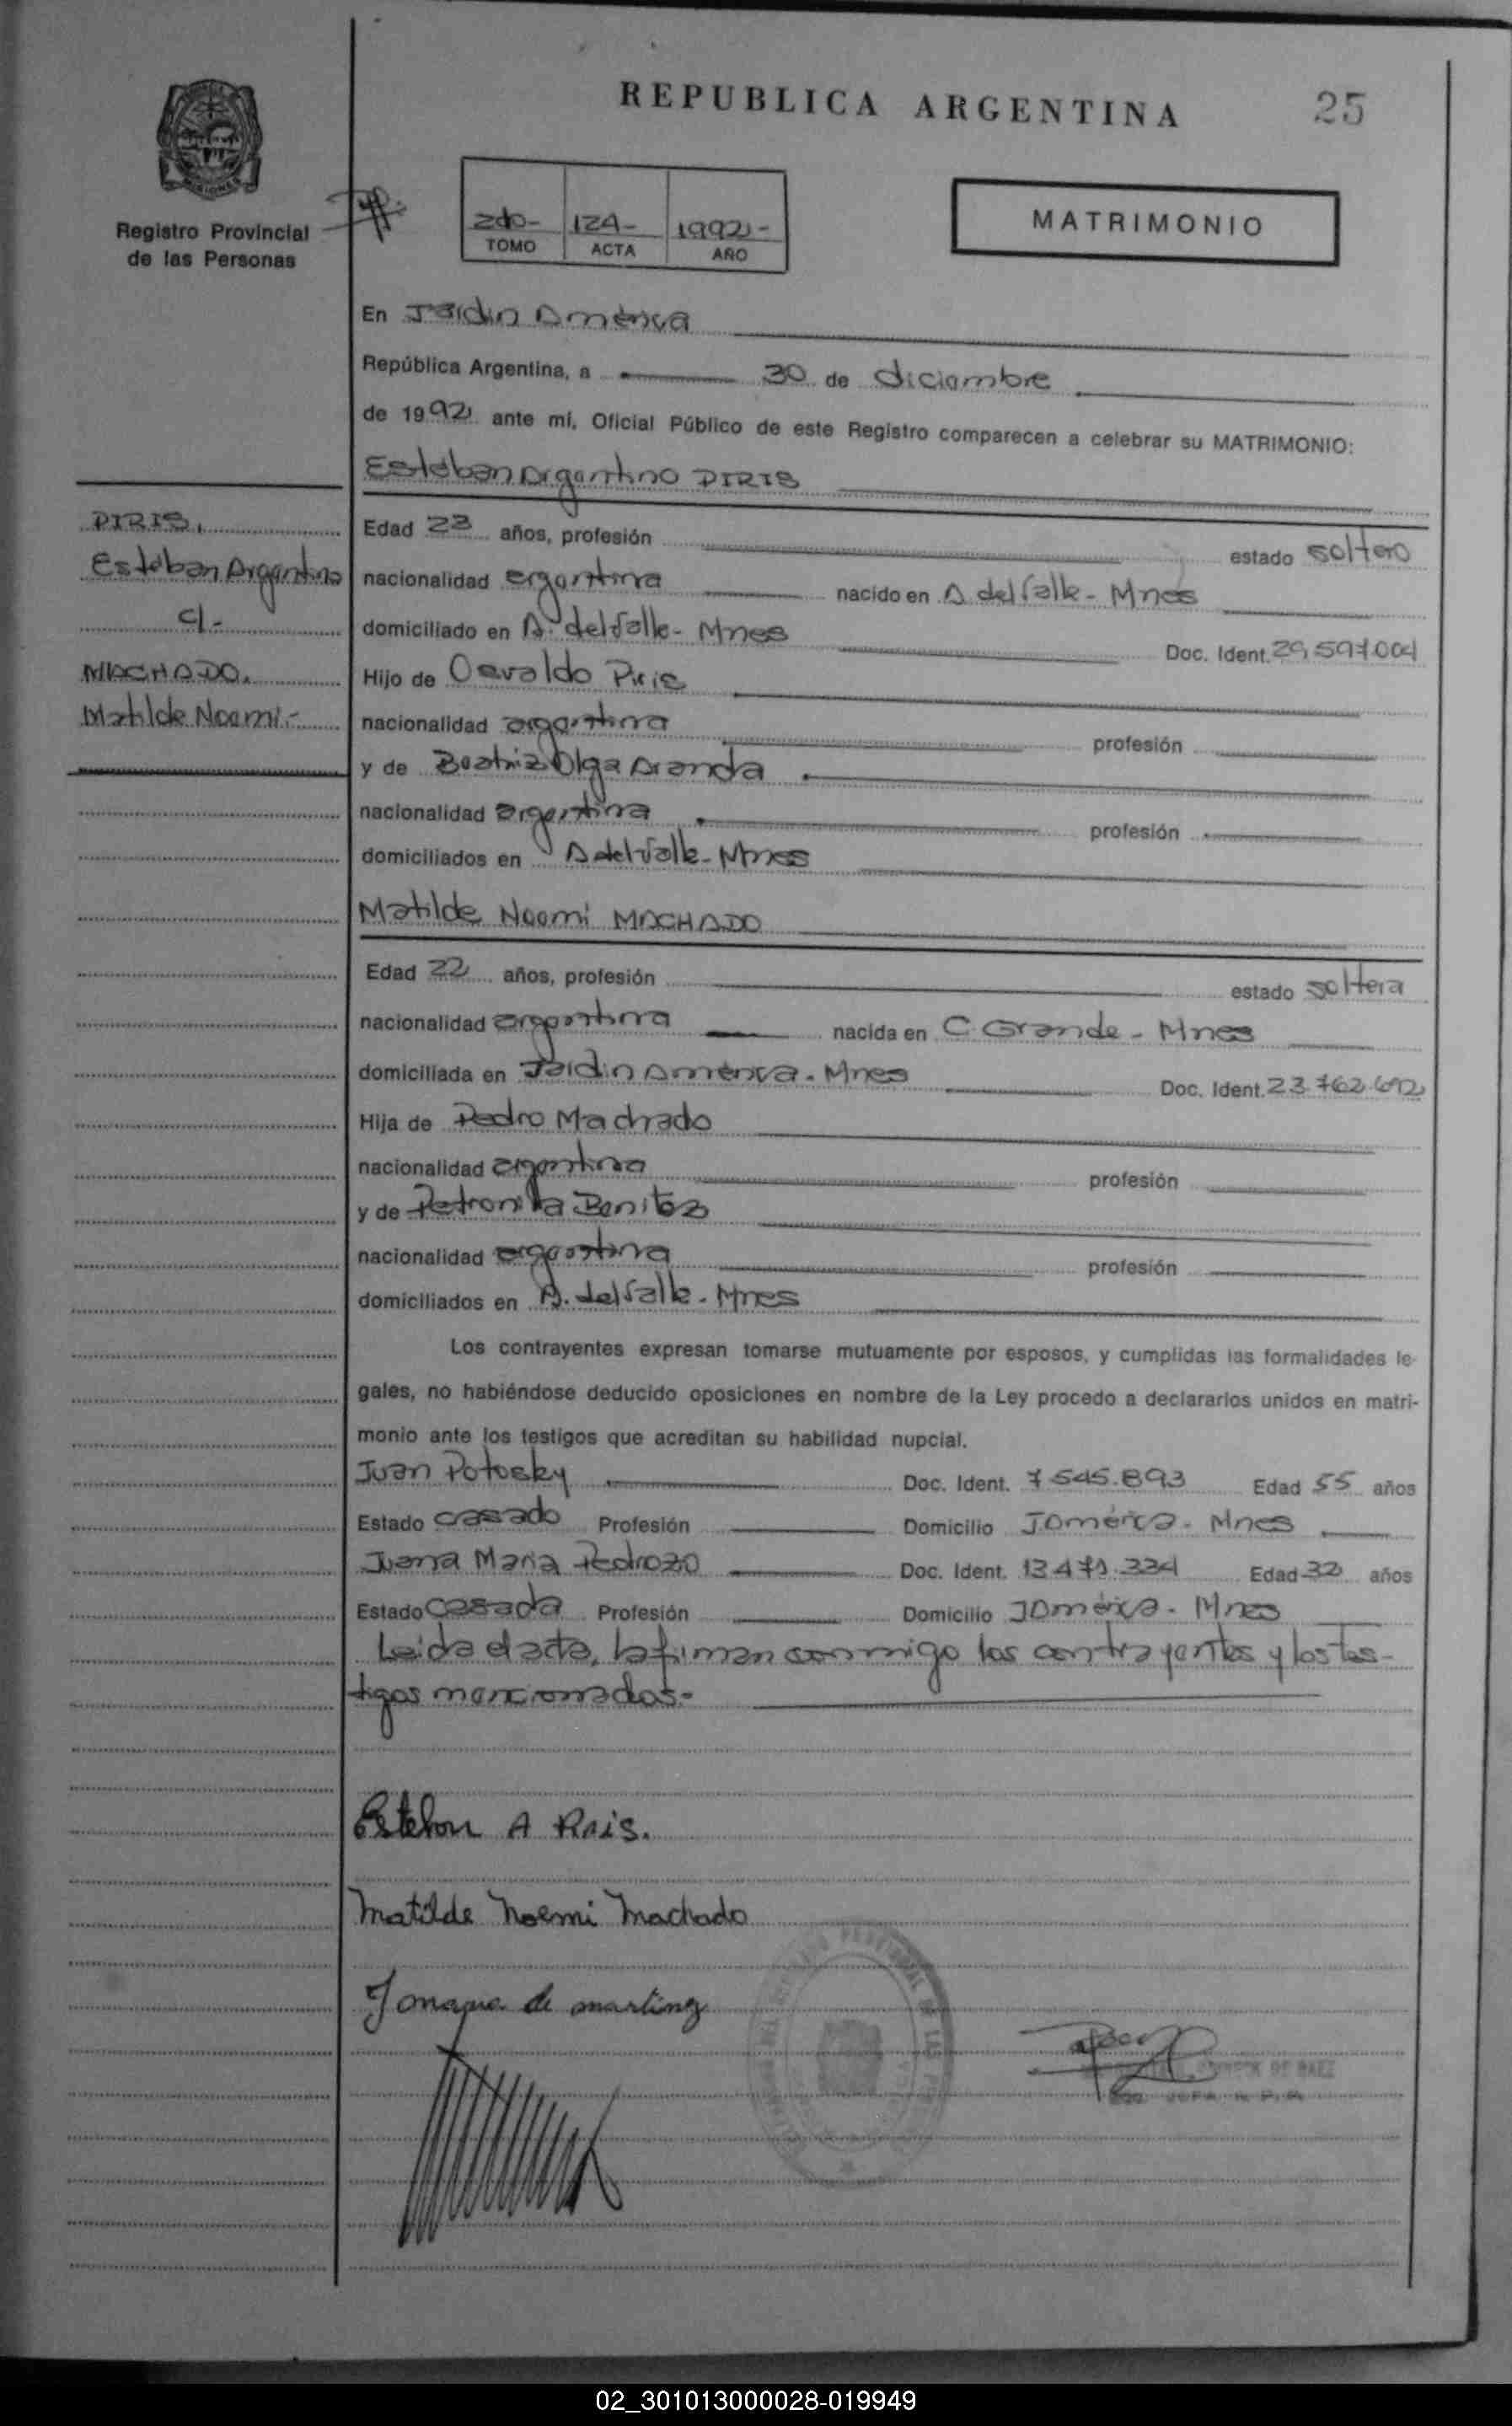 REPUBLICA ARGENTINA
25
Registro Provincial
de las Personas
2do- 124- 1992-
TOMO ACTA AÑO
MATRIMONIO
En Jardin América
República Argentina, a 30 de diciembre
de 1992 ante mí, Oficial Público de este Registro comparecen a celebrar su MATRIMONIO:
Esteban Argentino PIRIS
PIRIS,
Esteban Argentino
c/-
MACHADO,
Matilde Noemi.-
Edad 23 años, profesión estado soltero
nacionalidad argentina nacido en A. del Valle - Mnes
domiciliado en A. del Valle - Mnes Doc. Ident. 29.597.004
Hijo de Osvaldo Piris
nacionalidad argentina profesión
y de Beatriz Olga Aranda
nacionalidad argentina profesión
domiciliados en A del Valle - Mnes
Matilde Noemi MACHADO
Edad 22 años, profesión estado soltera
nacionalidad argentina nacida en C. Grande - Mnes
domiciliada en Jardin América - Mnes Doc. Ident. 23.762.692
Hija de Pedro Machado
nacionalidad argentina profesión
y de Petronila Benitez
nacionalidad argentina profesión
domiciliados en A. del Valle - Mnes
Los contrayentes expresan tomarse mutuamente por esposos, y cumplidas las formalidades le-
gales, no habiéndose deducido oposiciones en nombre de la Ley procedo a declararlos unidos en matri-
monio ante los testigos que acreditan su habilidad nupcial.
Juan Potosky Doc. Ident. 7.545.893 Edad 55 años
Estado casado Profesión Domicilio J América - Mnes
Juana Maria Pedrozo Doc. Ident. Edad 32 años
Estado casada Profesión Domicilio J América - Mnes
Leida el acta, la firman conmigo los contrayentes y los tes-
tigos mencionados.-
Esteban A Piris.
Matilde Noemi Machado
de martinez
DE BAEZ
02_301013000028-019949